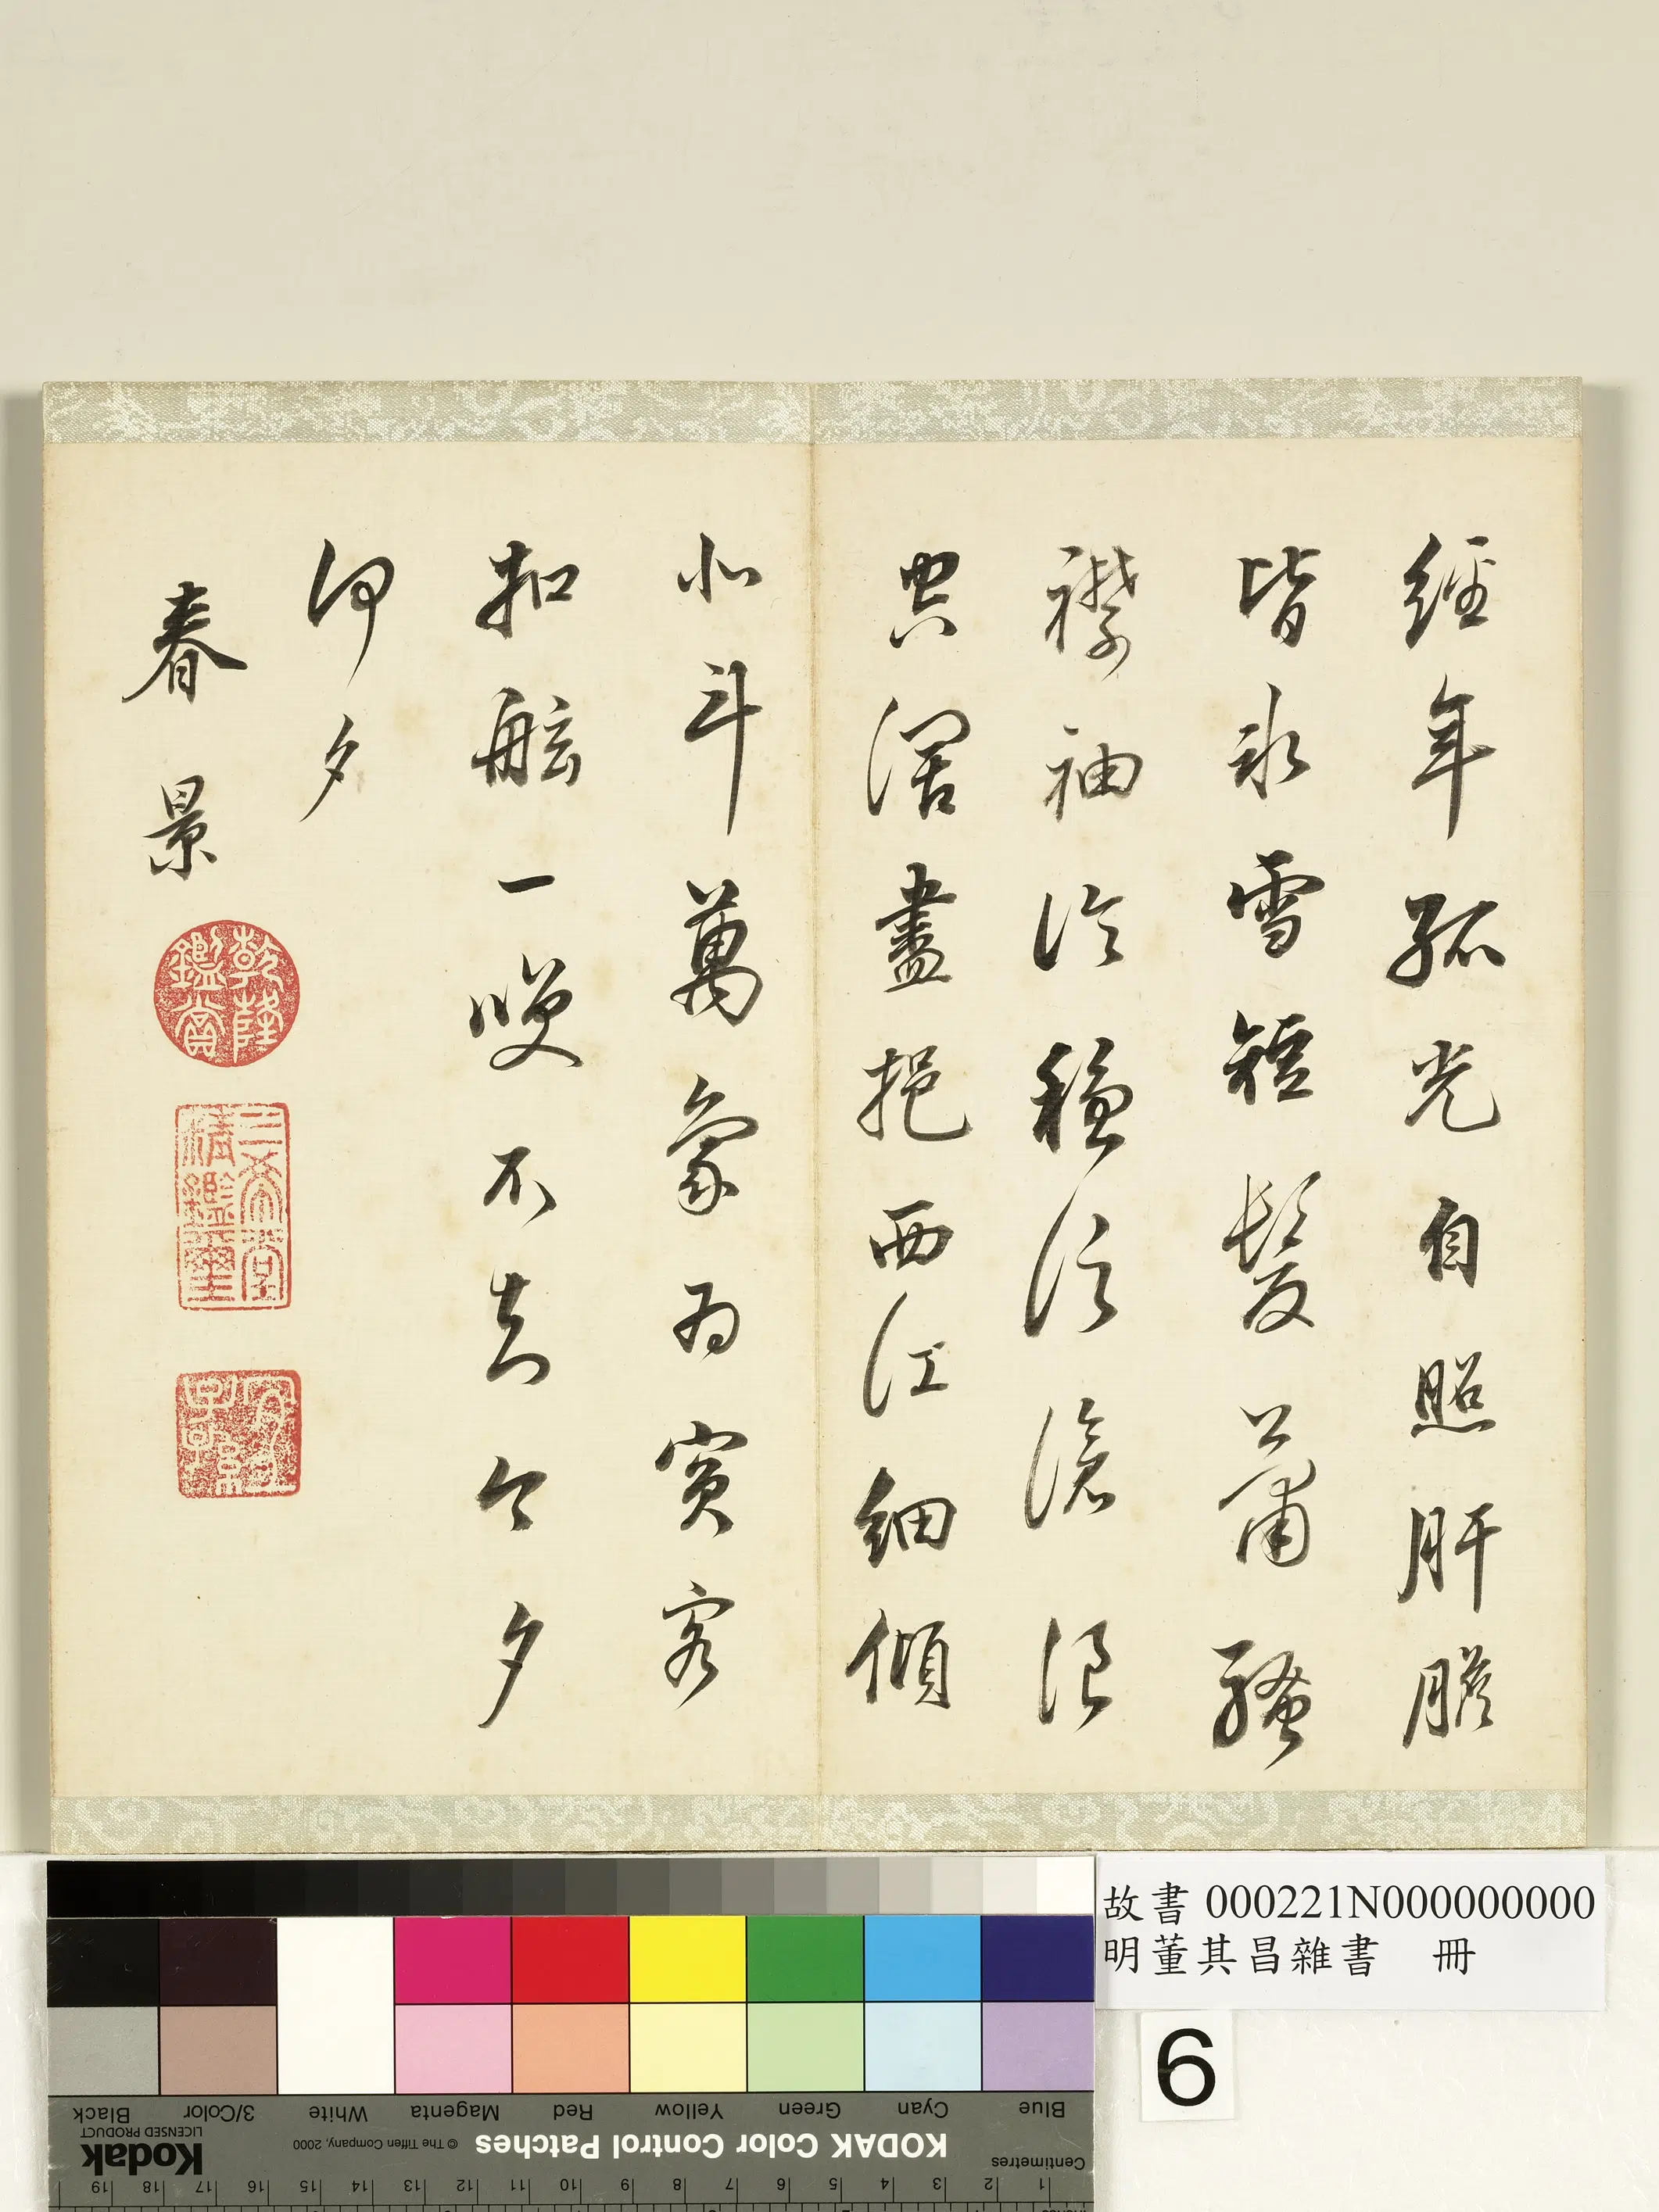 經年孤光自照肝膽
皆氷雪短髮蕭騷
襟袖冷穩泛滄浪
空闊盡挹西江細傾
北斗萬象為賓客
扣舷一 不知今夕
何夕
春景
乾隆鑑賞
三希堂精鑑璽
宜子孫
故書 000221N000000000
明董其昌雜書 冊
6
Blue Cyan Green Yellow Red Magenta White 3/Color Black
KODAK Color Control Patches © The Tiffen Company, 2000 Kodak
LICENSED PRODUCT
Centimetres 1 2 3 4 5 6 7 8 9 10 11 12 13 14 15 16 17 18 19